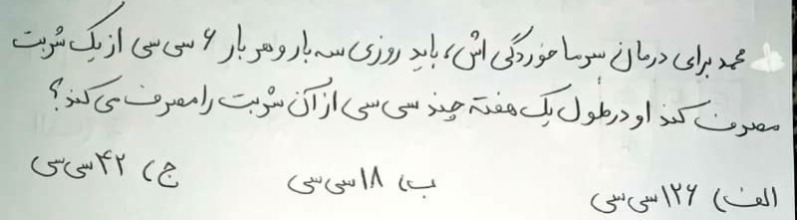 محمد برای درمان سرما خوردگی اش، باید روزی سه بار و هر بار ۶ سی سی از یک شربت
مصرف کند او در طول یک هفته چند سی سی از آن شربت را مصرف می کند؟
الف) ۱۲۶ سی سی ب) ۱۸ سی سی ج) ۴۲ سی سی